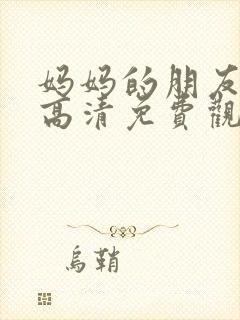 妈妈的朋友
高清免費觀
烏鞘